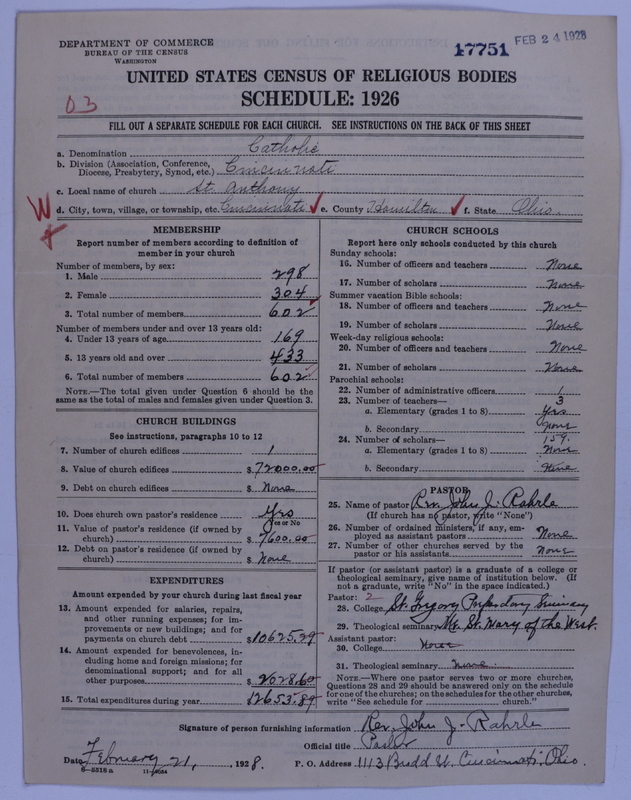 DEPARTMENT OF COMMERCE
BUREAU OF THE CENSUS
WASHINGTON
17751 FEB 24 1928
UNITED STATES CENSUS OF RELIGIOUS BODIES
SCHEDULE: 1926
03
FILL OUT A SEPARATE SCHEDULE FOR EACH CHURCH. SEE INSTRUCTIONS ON THE BACK OF THIS SHEET
a. Denomination Catholic
b. Division (Association, Conference, Diocese, Presbytery, Synod, etc.) Cincinnati
c. Local name of church St. Anthony
d. City, town, village, or township, etc. Cincinnati e. County Hamilton f. State Ohio.
W
MEMBERSHIP
Report number of members according to definition of
member in your church
Number of members, by sex:
1. Male 298
2. Female 304
3. Total number of members 602
Number of members under and over 13 years old:
4. Under 13 years of age 169
5. 13 years old and over 433
6. Total number of members 602
NOTE.—The total given under Question 6 should be
same as the total of males and females given under Question 3.
CHURCH BUILDINGS
See instructions, paragraphs 10 to 12
7. Number of church edifices 1
8. Value of church edifices $ 72000.00
9. Debt on church edifices $ None
10. Does church own pastor's residence Yes
Yes or No
11. Value of pastor's residence (if owned by
church) $ 7600.00
12. Debt on pastor's residence (if owned by
church) $ None
EXPENDITURES
Amount expended by your church during last fiscal year
13. Amount expended for salaries, repairs,
and other running expenses; for im-
provements or new buildings; and for
payments on church debt $ 10625.29
14. Amount expended for benevolences, in-
cluding home and foreign missions; for
denominational support; and for all
other purposes $ 2028.60
15. Total expenditures during year 12653.89
CHURCH SCHOOLS
Report here only schools conducted by this church
Sunday schools:
16. Number of officers and teachers None
17. Number of scholars None
Summer vacation Bible schools:
18. Number of officers and teachers None
19. Number of scholars None
Week-day religious schools:
20. Number of officers and teachers None
21. Number of scholars None
Parochial schools:
22. Number of administrative officers 1
23. Number of teachers— 3
a. Elementary (grades 1 to 8) Yes
b. Secondary None
24. Number of scholars— 159.
a. Elementary (grades 1 to 8) None
b. Secondary None
PASTOR
25. Name of pastor Rev. John J. Rahrle
(If church has no pastor, write "None")
26. Number of ordained ministers, if any, em-
ployed as assistant pastors None
27. Number of other churches served by the
pastor or his assistants None
If pastor (or assistant pastor) is a graduate of a college or
theological seminary, give name of institution below. (If
not a graduate, write "No" in the space indicated.)
Pastor: 2
28. College St. Gregory Preparatory Seminary
29. Theological seminary Mt. St. Mary of the West.
Assistant pastor:
30. College None
31. Theological seminary None.
NOTE.—Where one pastor serves two or more churches,
Questions 28 and 29 should be answered only on the schedule
for one of the churches; on the schedules for the other churches,
write "See schedule for church."
Signature of person furnishing information Rev. John J. Rahrle
Official title Pastor
Date February 21, 1928. P. O. Address 1113 Budd St. Cincinnati Ohio.